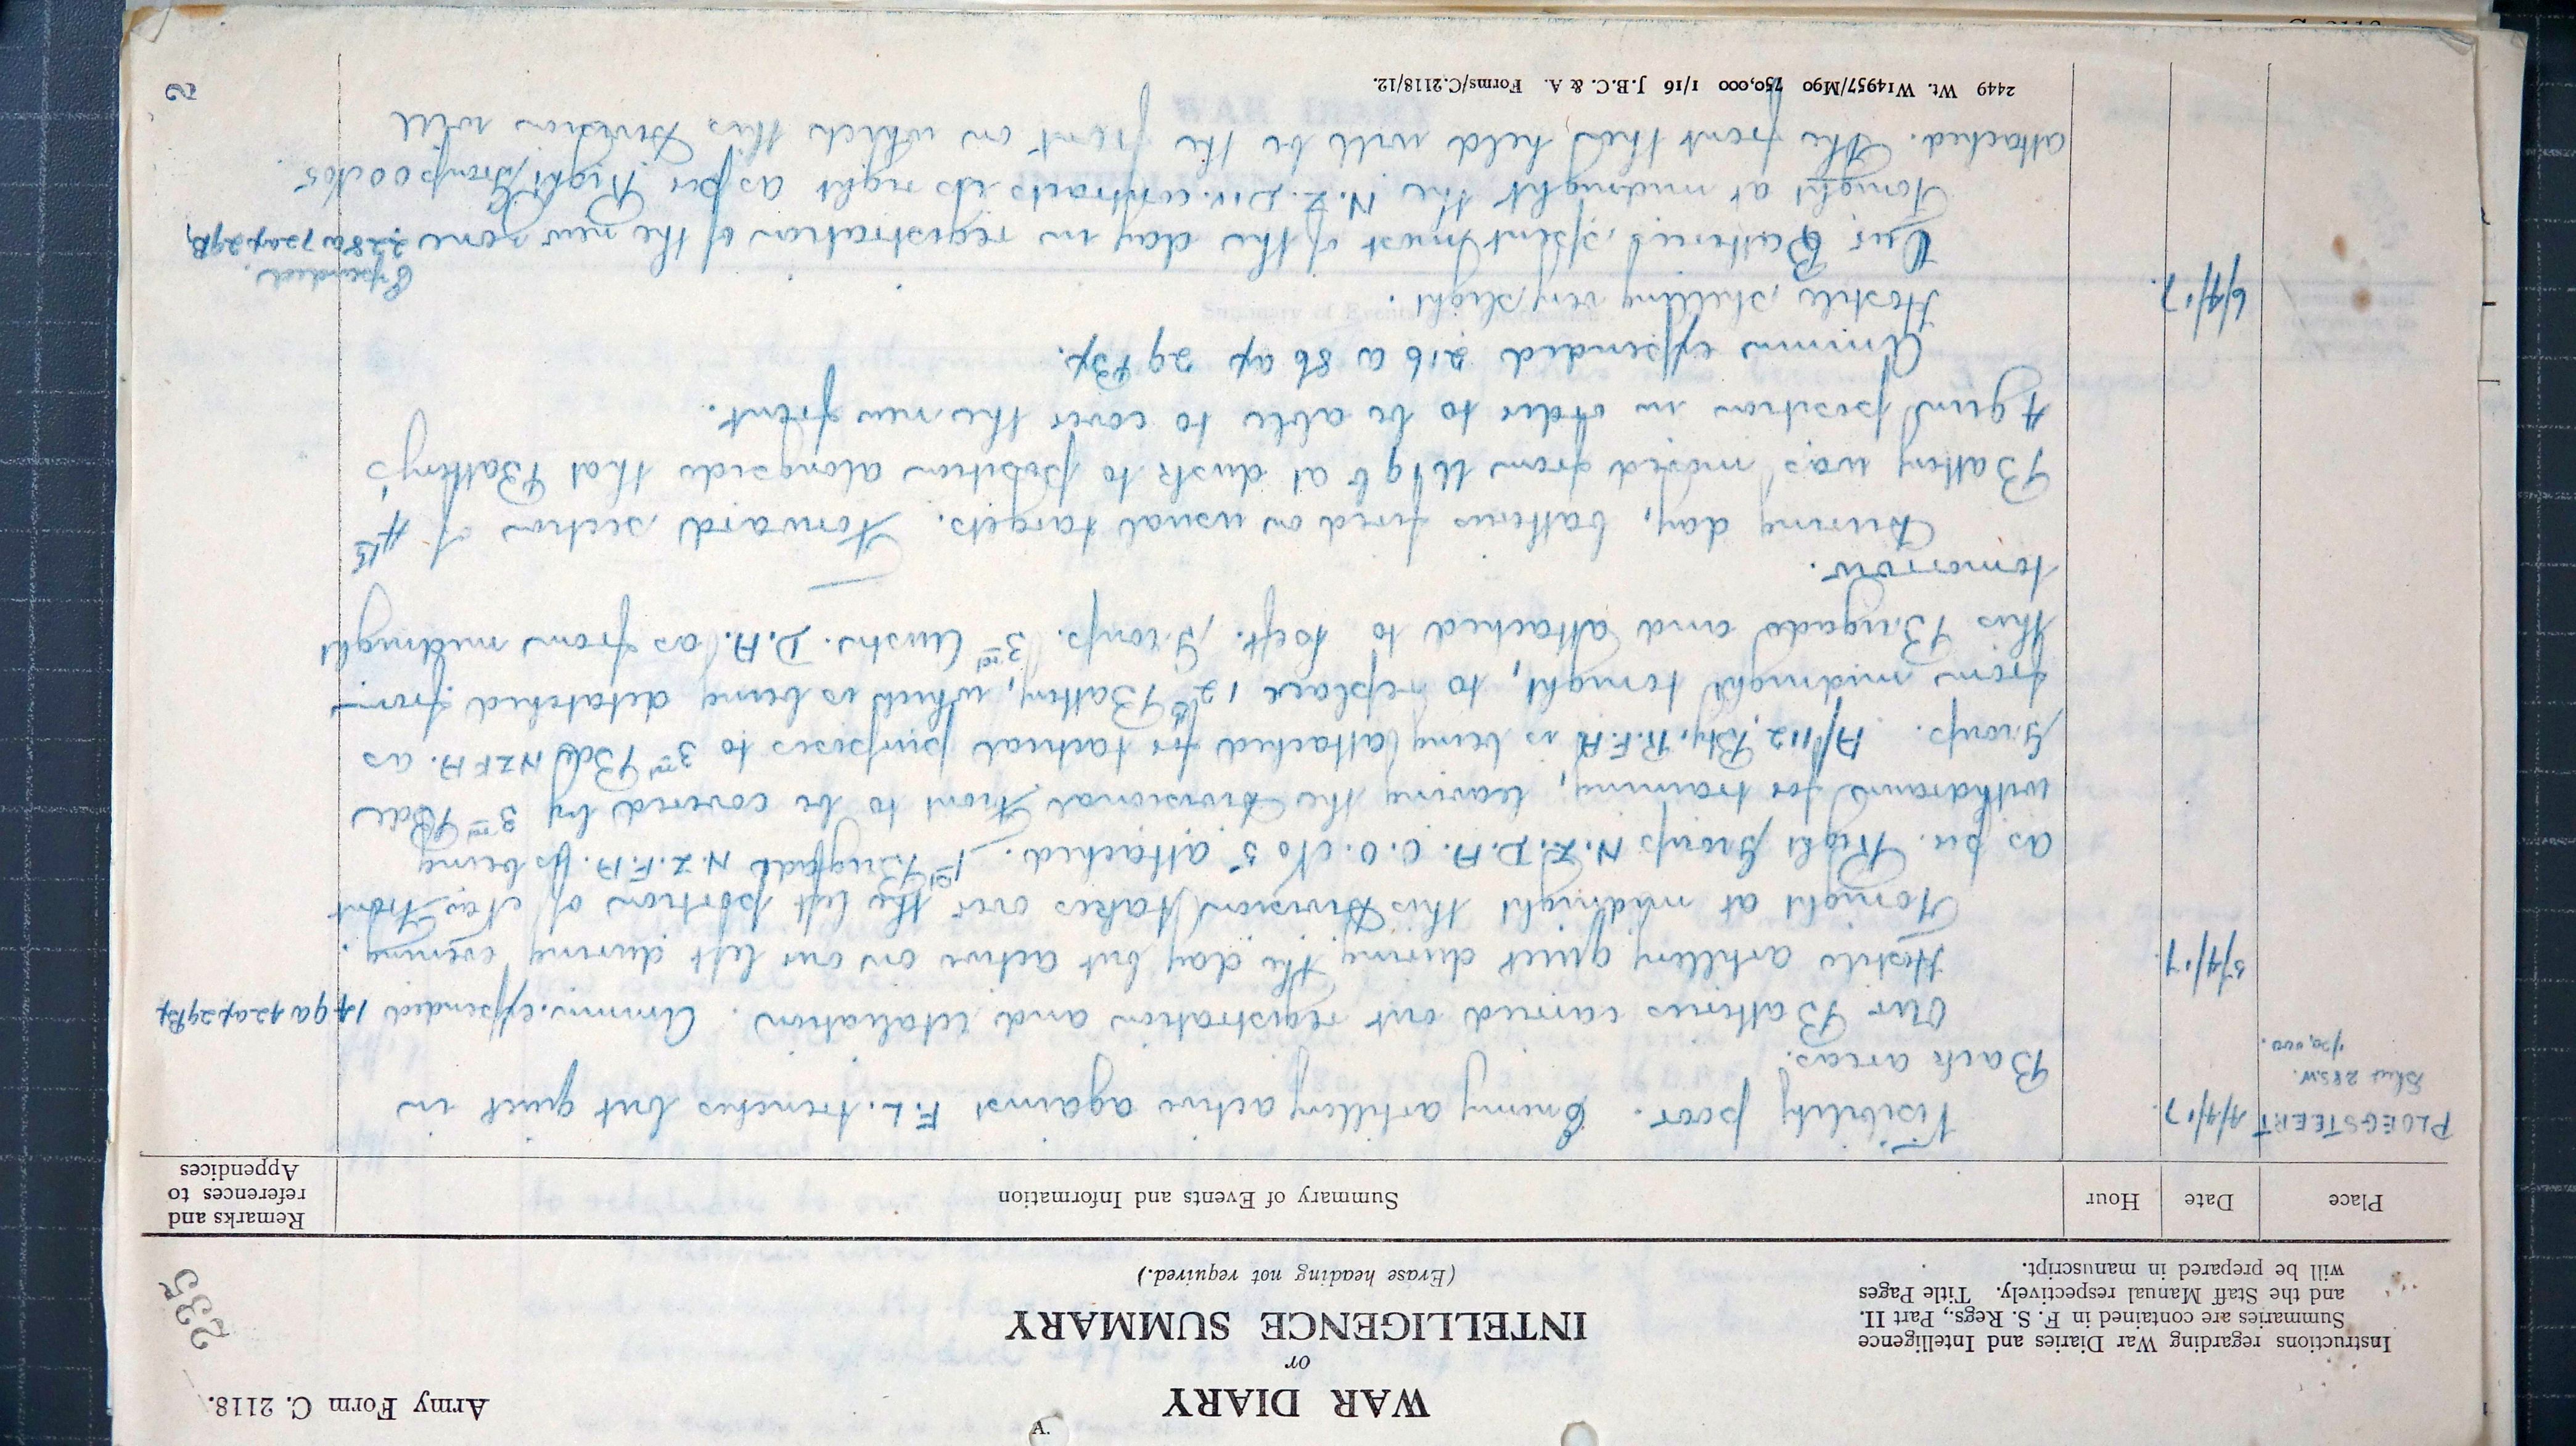 Army Form C. 2118.
WAR DIARY
or
INTELLIGENCE SUMMARY
(Erase heading not required.)
Instructions regarding War Diaries and Intelligence
Summaries are contained in F. S. Regs., Part II.
and the Staff Manual respectively. Title Pages
will be prepared in manuscript.
235
Place
Date
Hour
Summary of Events and Information
Remarks and
references to
Appendices
PLOEGSTEERT 4/4/17. Visibility poor. Enemy artillery active against F.L. trenches but quiet in
Sheet 28 S.W.
1/20,000.
Back areas.
Our Batteries carried out registration and retaliation. Ammn. expended 149a 42ax 29Bx
5/4/17. Hostile artillery quiet during the day but active on our left during evening.
Tonight at midnight this Division takes over the left portion of New Front
as per Right Group N.Z.D.A. O.O. No 5 attached. 1st Brigade N.Z.F.A. is being
withdrawn for training, leaving the Divisional Front to be covered by 3rd Bde
Group. A/112 Bty. R.F.A. is being attached for tactical purposes to 3rd Bde NZFA. as
from midnight tonight, to replace 12th Battery, which is being detatched from
this Brigade and attached to Left. Group. 3rd Austn. D.A. as from midnight
tomorrow.
During day, batteries fired on usual targets. Forward section of 4th
Battery was moved from at dusk to position alongside that Battery's
4 gun position in order to be able to cover the new front.
Ammn expended 216 a 86 ax 29 Bx.
6/4/17. Hostile shelling very slight.
Expended.
Our Batteries spent most of the day in registration of the new zone 228a 72ax 29B,
Tonight at midnight the N.Z. Div. contracts its right as per Right Group OO No5
attached. The front then held will be the front on which this Division will
2449 Wt. W14957/M90 750,000 1/16 J.B.C. & A. Forms/C.2118/12.
2